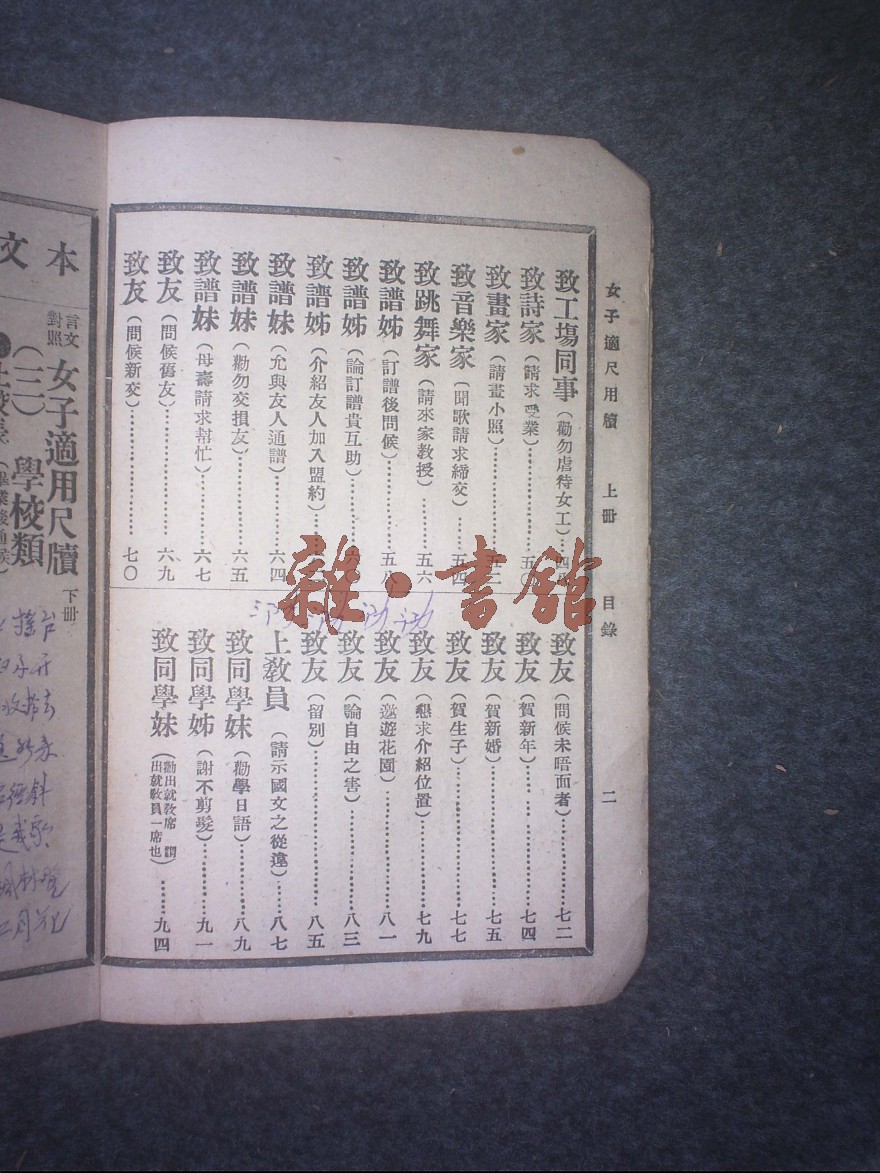 女子適尺用牘 上冊 目錄 二
致工塲同事（勸勿虐待女工）
致詩家（請求受業）五〇
致畫家（請畫小照）
致音樂家（聞歌請求締交）五四
致跳舞家（請來家教授）五六
致譜姊（訂譜後問候）五八
致譜姊（論訂譜貴互助）
致譜姊（介紹友人加入盟約）
致譜妹（允與友人通譜）六四
致譜妹（勸勿交損友）六五
致譜妹（母壽請求幫忙）六七
致友（問候舊友）六九
致友（問候新交）七〇
致友（問候未晤面者）七二
致友（賀新年）七四
致友（賀新婚）七五
致友（賀生子）七七
致友（懇求介紹位置）七九
致友（邀遊花園）八一
致友（論自由之害）八三
致友（留別）八五
上教員（請示國文之從違）八七
致同學妹（勸學日語）八九
致同學姊（謝不剪髮）九一
致同學妹（勸出就教席 謂出就教員一席也）九四
雜·書館
本文
言文對照 女子適用尺牘 下冊
（三）學校類
上校長（畢業後通候）